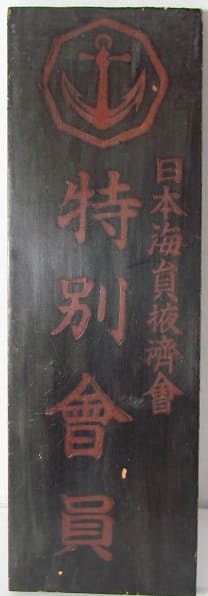 日本海員掖濟會
特別會員